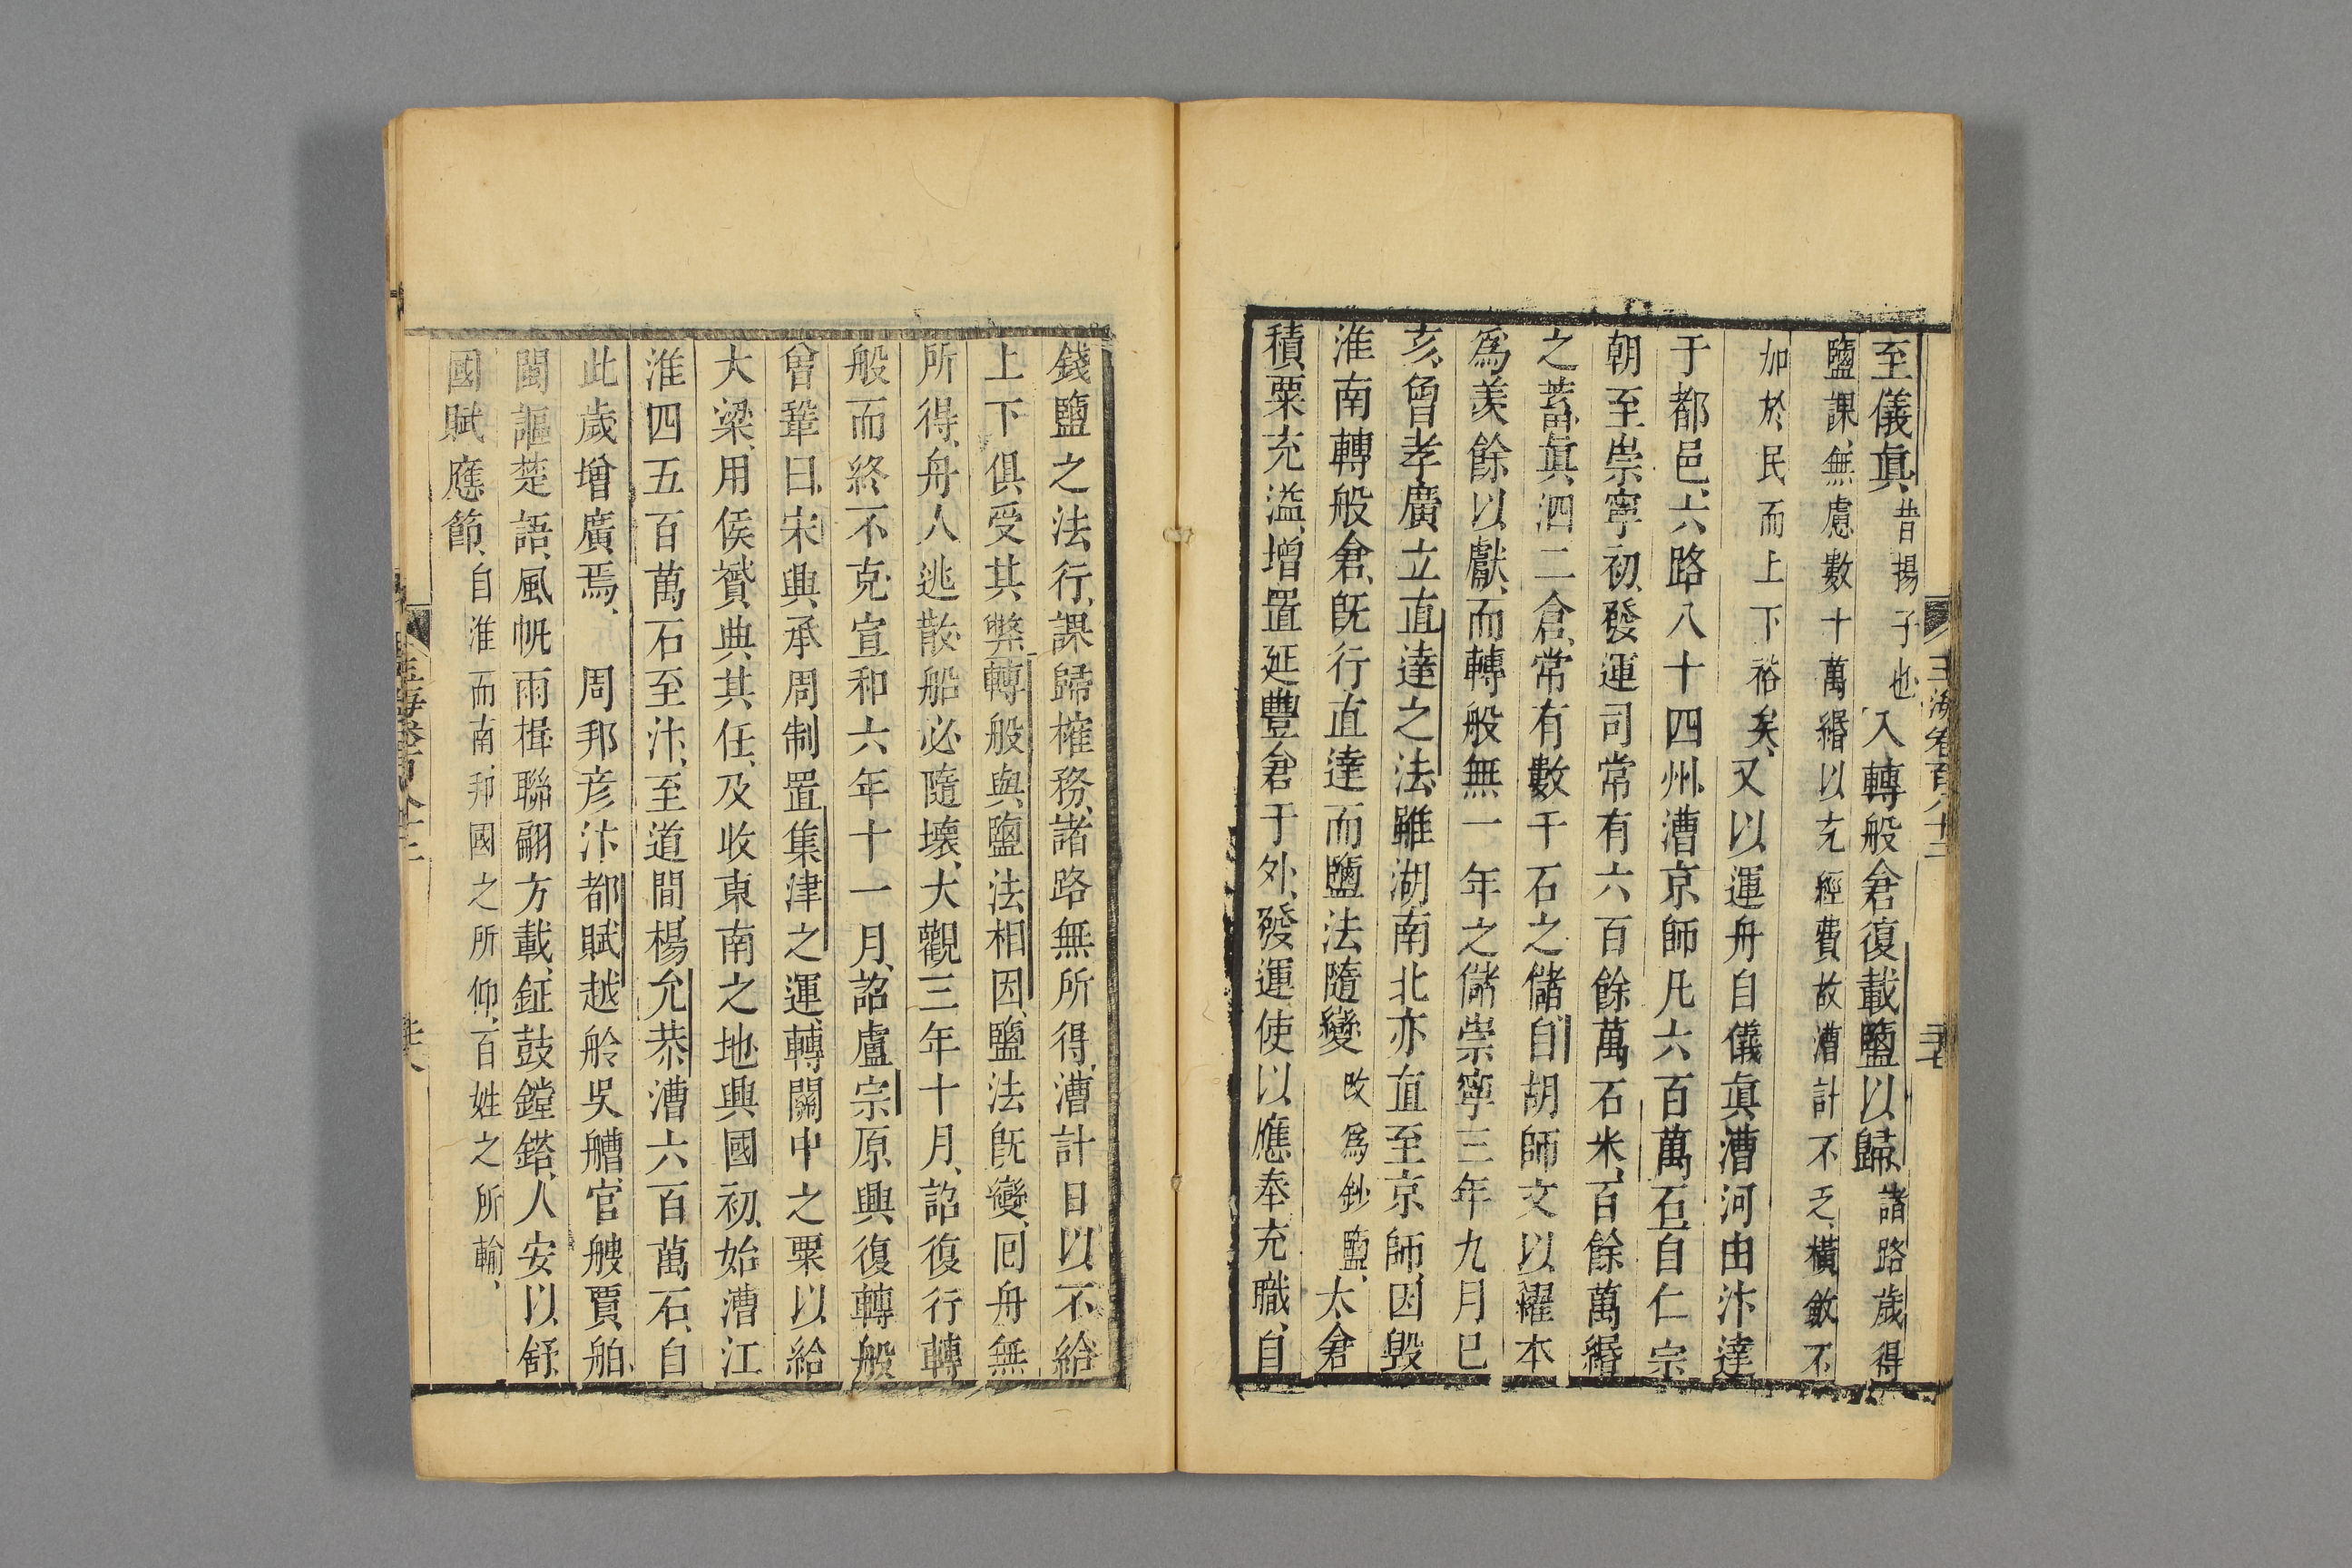 至儀真昔揚子也入轉般倉復載鹽以歸諸路歲得
鹽課無慮數十萬緡以充經費故漕計不乏橫斂不
加於民而上下裕矣又以運舟自儀真漕河由汴達
于都邑六路八十四州漕京師凡六百萬石自仁宗
朝至崇寧初發運司常有六百餘萬石米百餘萬緡
之蓄真泗二倉常有數千石之儲自胡師文以糴本
爲羨餘以獻而轉般無一年之儲崇寧三年九月巳
亥曾孝廣立直達之法雖湖南北亦直至京師因毁
淮南轉般倉旣行直達而鹽法隨變改爲鈔鹽太倉
積粟充溢增置延豐倉于外發運使以應奉充職自
玉海卷百八十二
錢鹽之法行課歸榷務諸路無所得漕計日以不給
上下俱受其弊轉般與鹽法相因鹽法旣變囘舟無
所得舟人逃散船必隨壞大觀三年十月詔復行轉
般而終不克宣和六年十一月詔盧宗原興復轉般
曾鞏曰宋興承周制置集津之運轉關中之粟以給
大梁用侯贇典其任及收東南之地興國初始漕江
淮四五百萬石至汴至道間楊允恭漕六百萬石自
此歲增廣焉 周邦彦汴都賦越舲吳艚官艘賈舶
閩謳楚語風帆雨楫聯翩方載鉦鼓鏜鎝人安以舒
國賦應節自淮而南邦國之所仰百姓之所輸